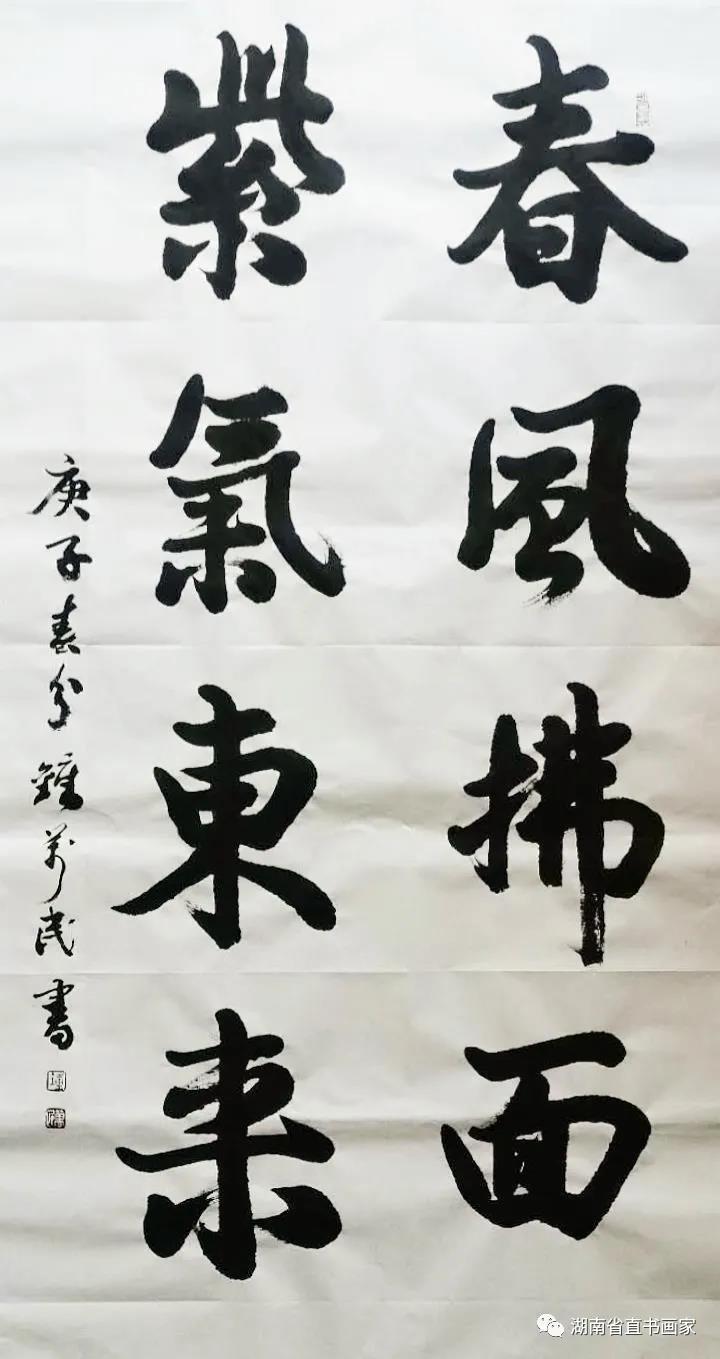 春風拂面
紫氣東来
庚子春分鍾萬民書
湖南省直书画家